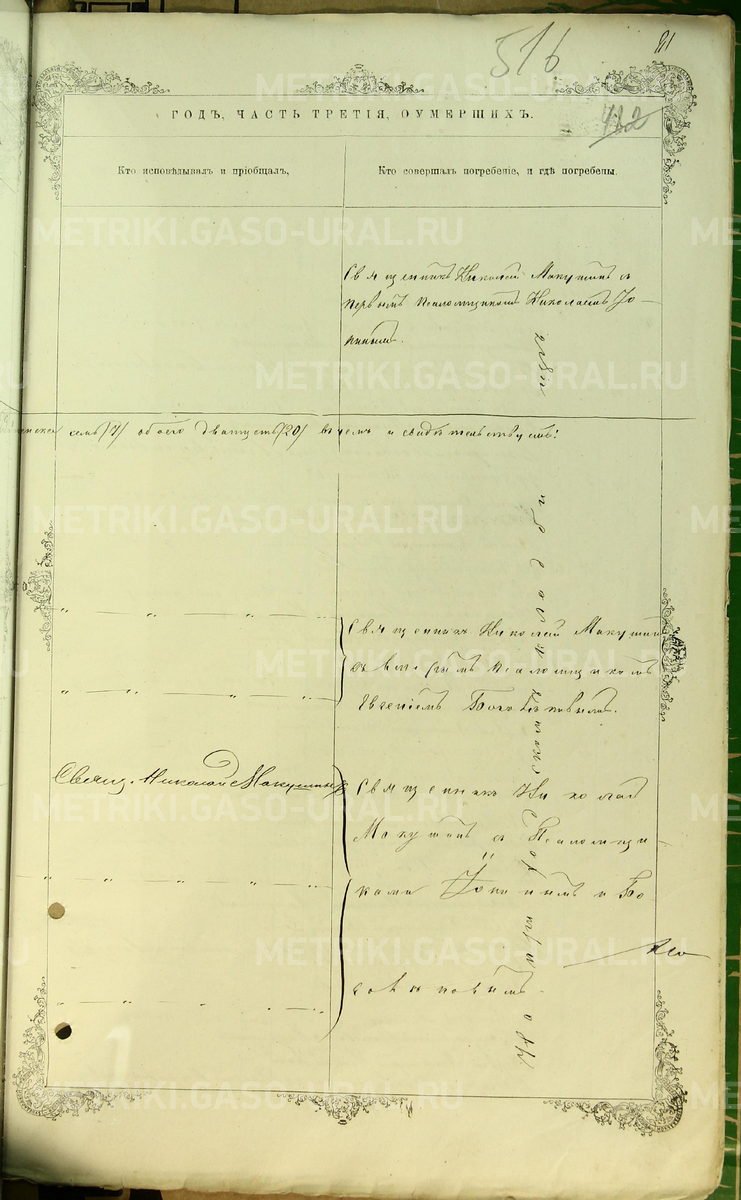 516
21
ГОДЪ, ЧАСТЬ ТРЕТІЯ, ОУМЕРШИХЪ.
412
Кто исповѣдывалъ и пріобщалъ,
Кто совершалъ погребеніе, и гдѣ погребены.
Священникъ Николай Макушинъ съ
первымъ Псаломщикомъ Николаемъ
семь /7/ обоего двадцать /20/ въ чемъ и свидѣтельствуемъ:
Священникъ Николай Макушинъ
съ вторымъ псаломщикомъ
Евгеніемъ
Свящ. Николай Макушинъ
Священникъ Николай
Макушинъ съ Псаломщи-
ками и Бо
На приходскомъ кладбищѣ
METRIKI.GASO-URAL.RU